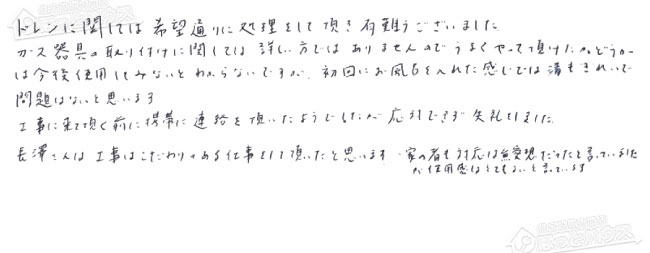 ドレンに関しては希望通りに処理をして頂き有難うございました
ガス器具の取り付けに関しては詳しい方ではありませんのでうまくやって頂けたかどうか
は今後使用してみないとわからないですが、初回にお風呂を入れた感じでは湯もきれいで
問題はないと思います
工事に来て頂く前に携帯に連絡を頂いたようでしたが応対できず失礼しました
長澤さんは工事はこだわりのある仕事をして頂いたと思います、家の者も対応は無愛想だったと言っていました
が使用感はとてもいいと言っています